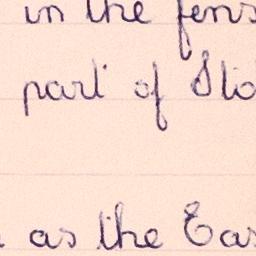 in the fens
part of Sto
as the Eas